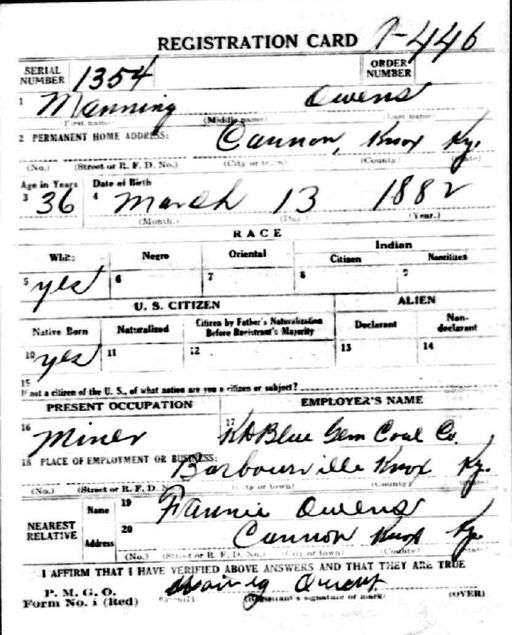 REGISTRATION CARD
SERIAL NUMBER 1354 ORDER NUMBER 446
1 Manning Owens
(First name) (Middle name) (Last name)
2 PERMANENT HOME ADDRESS: Cannon, Knox Ky.
(No.) (Street or R. F. D. No.) (City or town) (County) (State)
Age in Years Date of Birth
3 36 4 March 13 1882
(Month.) (Day.) (Year.)
RACE
White Negro Oriental Indian
Citizen Noncitizen
5 yes 6 7 8 9
U. S. CITIZEN ALIEN
Native Born Naturalized Citizen by Father's Naturalization Before Registrant's Majority Declarant Non-declarant
10 yes 11 12 13 14
15 If not a citizen of the U. S., of what nation are you a citizen or subject?
PRESENT OCCUPATION EMPLOYER'S NAME
16 Miner 17 Blue Gem Coal Co.
18 PLACE OF EMPLOYMENT OR BUSINESS:
Barbourville Knox Ky.
(No.) (Street or R. F. D. No.) (City or town) (County)
NEAREST RELATIVE Name 19 Fannie Owens
Address 20 Cannon Knox Ky
(No.) (Street or R. F. D. No.) (City or town) (County) (State)
I AFFIRM THAT I HAVE VERIFIED ABOVE ANSWERS AND THAT THEY ARE TRUE
P. M. G. O.
Form No. 1 (Red) (Registrant's signature or mark) (OVER)